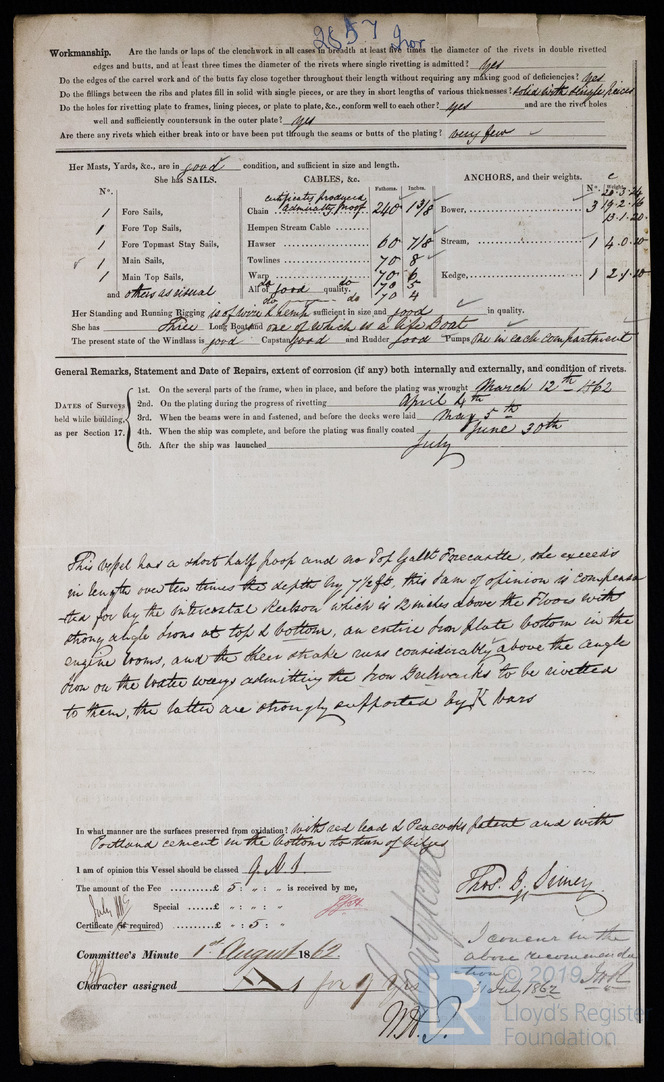 2857 Iron
Workmanship. Are the lands or laps of the clenchwork in all cases in breadth at least five times the diameter of the rivets in double rivetted
edges and butts, and at least three times the diameter of the rivets where single rivetting is admitted? yes
Do the edges of the carvel work and of the butts fay close together throughout their length without requiring any making good of deficiencies? yes
Do the fillings between the ribs and plates fill in solid with single pieces, or are they in short lengths of various thicknesses? solid with single pieces
Do the holes for rivetting plate to frames, lining pieces, or plate to plate, &c., conform well to each other? yes and are the rivet holes
well and sufficiently countersunk in the outer plate? yes
Are there any rivets which either break into or have been put through the seams or butts of the plating? very few
Her Masts, Yards, &c., are in good condition, and sufficient in size and length.
She has SAILS. CABLES, &c. Fathoms. Inches. ANCHORS, and their weights. Nº. Weight.
Nº. certificates produced 20.3.24
1 Fore Sails, Chain admiralty proof 240 1 3/8 Bower, 3 19.2.16
1 Fore Top Sails, Hempen Stream Cable 13.1.20
1 Fore Topmast Stay Sails, Hawser 60 7/8 Stream, 1 4.0.10
1 Main Sails, Towlines 70 8
1 Main Top Sails, Warp 70 6 Kedge, 1 2.1.20
and others as usual All of good quality. 70 5
do do 70 4
Her Standing and Running Rigging is of wire & hemp sufficient in size and good in quality.
She has Three Long Boat and one of which is a life Boat
The present state of the Windlass is good Capstan good and Rudder good Pumps one in each compartment
General Remarks, Statement and Date of Repairs, extent of corrosion (if any) both internally and externally, and condition of rivets.
DATES of Surveys held while building, as per Section 17.
1st. On the several parts of the frame, when in place, and before the plating was wrought March 12th 1862
2nd. On the plating during the progress of rivetting April 4th
3rd. When the beams were in and fastened, and before the decks were laid May 5th
4th. When the ship was complete, and before the plating was finally coated June 30th
5th. After the ship was launched July
This vessel has a short half poop and no Top Gallt Forecastle, she exceeds
in length over ten times the depth by 7 1/2 ft, this I am of opinion is compensa
-ted for by the intercostal Keelson which is 12 inches above the Floors with
strong angle Irons at top & bottom, an entire Iron plate bottom in the
engine rooms, and the sheer strake runs considerably above the angle
Iron on the water ways admitting the Iron Bulwarks to be rivetted
to them, the latter are strongly supported by K bars
In what manner are the surfaces preserved from oxidation? With red lead & Peacocks patent and with
Portland cement in the bottom to turn of bilges
I am of opinion this Vessel should be classed 9 A 1
The amount of the Fee £ 5 : " : " is received by me,
Special £ " : " : "
Certificate (if required) £ " : 5 : "
Thos. B. Simey
Committee's Minute 1st August 1862.
Character assigned A 1 for 9 Yrs
I concur in the
above recommenda
-tion
31 July 1862
© 2019
LR
Lloyd's Register
Foundation